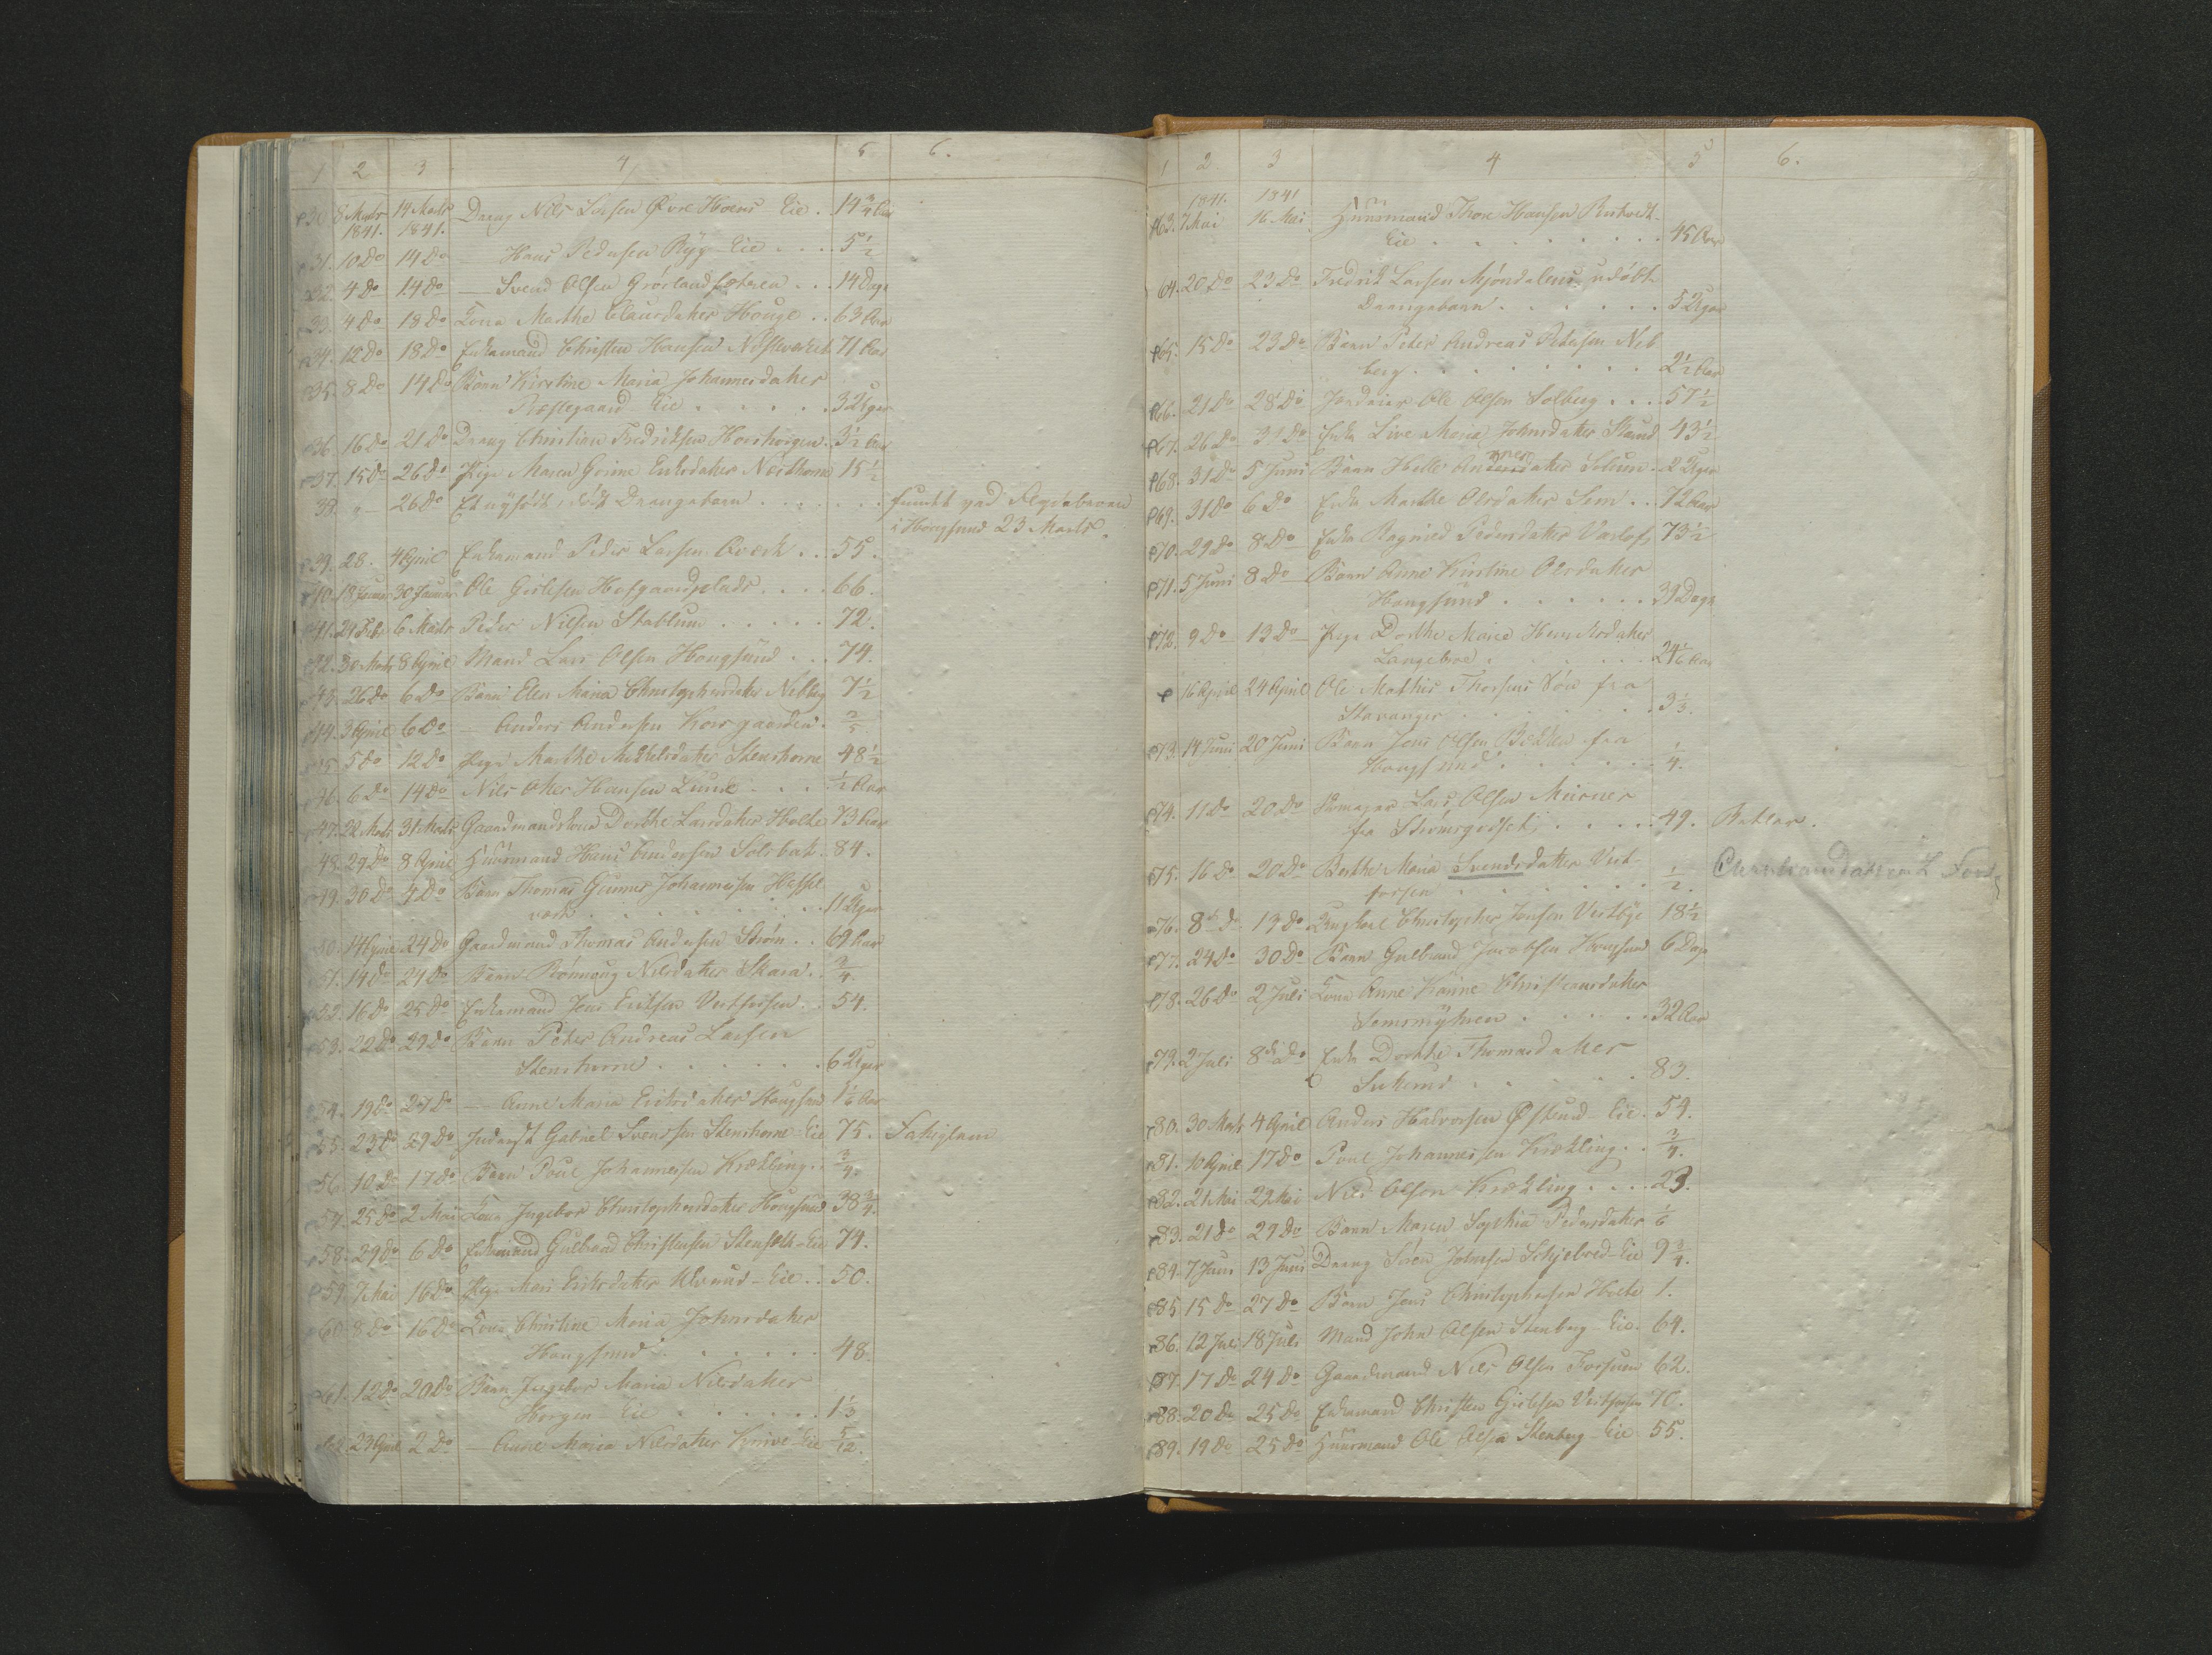 1 2 3 4 5 6.
30. 8 Marts 1841. 14 Marts 1841. Dreng Nils Larsen Øvre Hoens Eie. 14 3/4 Aar
31. 10 Do 14 Do — Hans Pedersen Ryg Eie . . . . 5 1/2
32. 4 Do 14 Do — Svend Olsen . . . 14 Dage
33. 4 Do 18 Do Kona Marthe Clausdatter Houge . . 63 Aar
34. 12 Do 18 Do Enkemand Christen Hansen 71 Aar
35. 8 Do 14 Do Barn Kirstine Maria Johannesdatter
Præstegaard Eie . . . . . . 3 Uger
36. 16 Do 21 Do Dreng Christian Fredriksen Horshorgen. 3 1/2 Aar
37. 15 Do 26 Do Pige Maren Gorine 15 1/2
38. „ 26 Do Et nyfödt, dödt Drengebarn . . . . . . . fundet ved
i Hougsund 23 Marts.
39. 28. 4 April Enkemand Peder Larsen . . . 55.
40. 18 Januar 30 Januar Ole Gislesen Hofgaardplads . . . . 66.
41. 24 Febr 6 Marts Peder Nilsen Stablum . . . . . 72.
42. 30 Marts 8 April Mand Lars Olsen Hougsund . . . 74.
43. 26 Do 6 Do Barn Elen Maria Christophersdatter Nebberg 7 1/2
44. 3 April 6 Do — Anders Andersen Korsgaarden.
45. 5 Do 12 Do Pige Marthe Mikkelsdatter Stenshorne 48 1/2
46. 6 Do 14 Do Nils Hansen Lunde . . . 1/2 Aar
47. 22 Marts 31 Marts Gaardmandskona Dorthe Larsdatter Holte 73 Aar
48. 29 Do 8 April Huusmand Hans Andersen Solsbak. 84.
49. 30 Do 4 Do Barn Thomas Gunnar Johannessen
. . . . . . . . . 11 Uger
50. 14 April 24 Do Gaardmand Thomas Andersen Strøm . . 69 Aar
51. 14 Do 24 Do Barn Rönnaug Nilsdatter Skara. . 3/4
52. 16 Do 25 Do Enkemand Jens Eriksen Vestfossen. . 54.
53. 22 Do 29 Do Barn Peter Andreas Larsen
Stenshorne . . . . . . 6 Uger
54. 19 Do 27 Do — Anne Maria Eriksdatter Hougsund 1 1/6 Aar
55. 23 Do 29 Do Inderst Gabriel Svendsen Stenshorne Eie 75. Fattiglem
56. 10 Do 17 Do Barn Poul Johannesen Krækling. . 3/4.
57. 25 Do 2 Mai Kona Ingebor Christophersdatter Hougsund 38 3/4.
58. 29 Do 6 Do Enkemand Gulbrand Christensen Eie 74.
59. 7 Mai 16 Do Pige Mari Eriksdatter Ulvrud Eie. . 50.
60. 8 Do 16 Do Kona Christine Maria Johnsdatter
Hougsund . . . . . . 48.
61. 12 Do 20 Do Barn Ingebor Maria Nilsdatter
Horgen Eie . . . . . . . 1 1/3
62. 23 April 2 Do — Anne Maria Nilsdatter Knive Eie 5/12.
1 2 3 4 5 6.
1841. 1841
63. 7 Mai 16 Mai Huusmand Thore Hansen
Eie . . . . . . . . . 45 Aar
64. 20 Do 23 Do Fredrik Larsen Mjöndalens udöbte
Drengebarn . . . . . . . 5 Uger
65. 15 Do 23 Do Barn Peter Andreas Petersen Neb
berg . . . . . . . . . 2 1/2 Aar
66. 21 Do 28 Do Jordeier Ole Olsen Solberg . . . 57 1/2
67. 26 Do 31 Do Enke Live Maria Johnsdatter 43 1/2
68. 31 Do 5 Juni Barn Helle Solum. 2 Uger
69. 31 Do 6 Do Enke Marthe Olesdatter Sem . . 72 Aar
70. 29 Do 8 Do Enke Ragnild Varlo 73 1/2
71. 5 Juni 8 Do Barn Anne Kirstine Olesdatter
Hougsund . . . . . . . 39 Dage
72. 9 Do 13 Do Pige Dorthe Maria Henriksdatter
Langebro . . . . . . 24 1/6 Aar
16 April 24 April Ole Mathis Thorsens Sön fra
Stavanger . . . . . . . 3 1/3.
73. 14 Juni 20 Juni Barn Jens Olsen fra
Hougsund . . . . . . 1/4.
74. 11 Do 20 Do Lars Olsen Murner
fra Strömsgodset . . . . . 49. Betler.
75. 16 Do 20 Do Berthe Maria Svendsdatter Vest
fossen . . . . . . . . 1/2.
76. 8 Do 13 Do Ungkarl Christopher Jensen Vestbye 18 1/2
77. 24 Do 30 Do Barn Gulbrand Jacobsen Hougsund 6 Dage
78. 26 Do 2 Juli Kona Anne Karine Christiansdatter
. . . . . 32 Aar
79. 2 Juli 8 Do Enke Dorthe Thomasdatter
. . . . . . 83.
80. 30 Marts 4 April Anders Halvorsen Østlund Eie. 54.
81. 10 April 17 Do Poul Johannesen Krækling. . 3/4.
82. 21 Mai 29 Mai Nils Olsen Krækling . . . . 23.
83. 21 Do 29 Do Barn Maren Sophia Pedersdatter 1/6
84. 7 Juni 13 Juni Dreng Sören Johnsen Schjelbred Eie 9 3/4.
85. 15 Do 27 Do Barn Jens Christophersen Holte 1.
86. 12 Juli 18 Juli Mand John Olsen Stenberg Eie. 64.
87. 17 Do 24 Do Gaardmand Nils Olsen Fossum 62.
88. 20 Do 25 Do Enkemand Christen Gislesen Vestfossen 70.
89. 19 Do 25 Do Huusmand Ole Olsen Stenberg Eie 55.